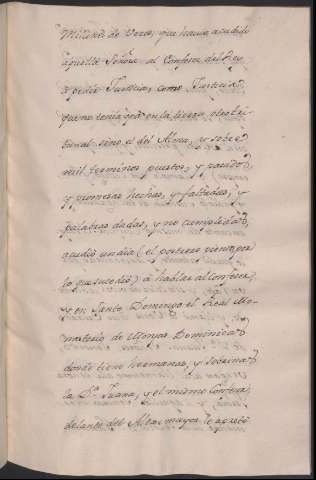 de Veces, que havia acudido
aquella Señora al Confesor del Rey
a pedir Justicia, como Justicia
que no tenia ya en la tierra, otro tri-
bunal sino el del Alma, y sobre
mil terminos puestos, y pasados,
y promesas hechas, y faltadas, y
palabras dadas, y no cumplidas,
acudio un dia (el postrero vienes por
lo que sucedio) à hablar al Confesor,
y en Santo Domingo el Real Mo-
nasterio de Monjas Dominicas
donde tiene hermanas, y sobrinas
la D.ª Juana, y el mismo Confesor
delante del Altar mayor le apretò